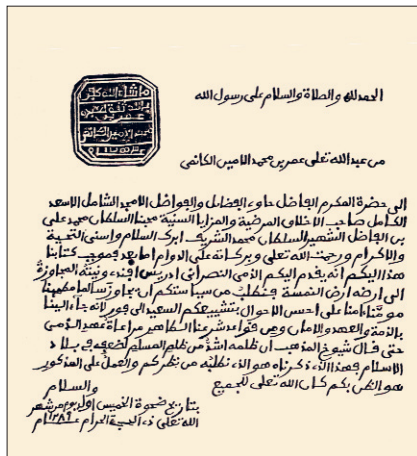 الحمد لله والصلاة والسلام على رسول الله
ما شاء الله كان
من عبد الله تعلى عمر بن محمد الامين الكانمى
الى حضرة المكرم الفاضل حاوى الفضائل والفواضل الامجد الشامل الاسعد
الكامل صاحب الاخلاق المرضية والمزايا السنية محبنا السلطان محمد على
بن الفاضل الشهير السلطان محمد الشريف ابرك السلام واسنى التحية
والاكرام ورحمت الله تعلى وبركاته على الدوام اما بعد فموجب كتابنا
هذا اليكم انه يقدم اليكم الذمى النصرانى ادريس افندى ونيته المجاوزة
الى ارضه ارض النمسة فنطلب من سياستكم ان يجاوز سالما مطمئنا
موقنا امنا على احسن الاحوال بتشييعكم السعيد الى فور لانه جاء الينا
بالذمة والعهد والامان وهى قواعد شرعنا الطاهر مراعاة عهد الذمى
حتى قال شيوخ المذهب ان ظلمه اشد من ظلم المسلم لضعفه فى بلاد
الاسلام فهذا الذى ذكرناه هو الذى نطلبه من نظركم والعمل على المذكور
هو الظن بكم كان الله تعلى للجميع والسلام
بتاريخ ضحوة الخميس اول يوم من شهر
الله تعلى ذى الحجة الحرام عام ١٢٨٩